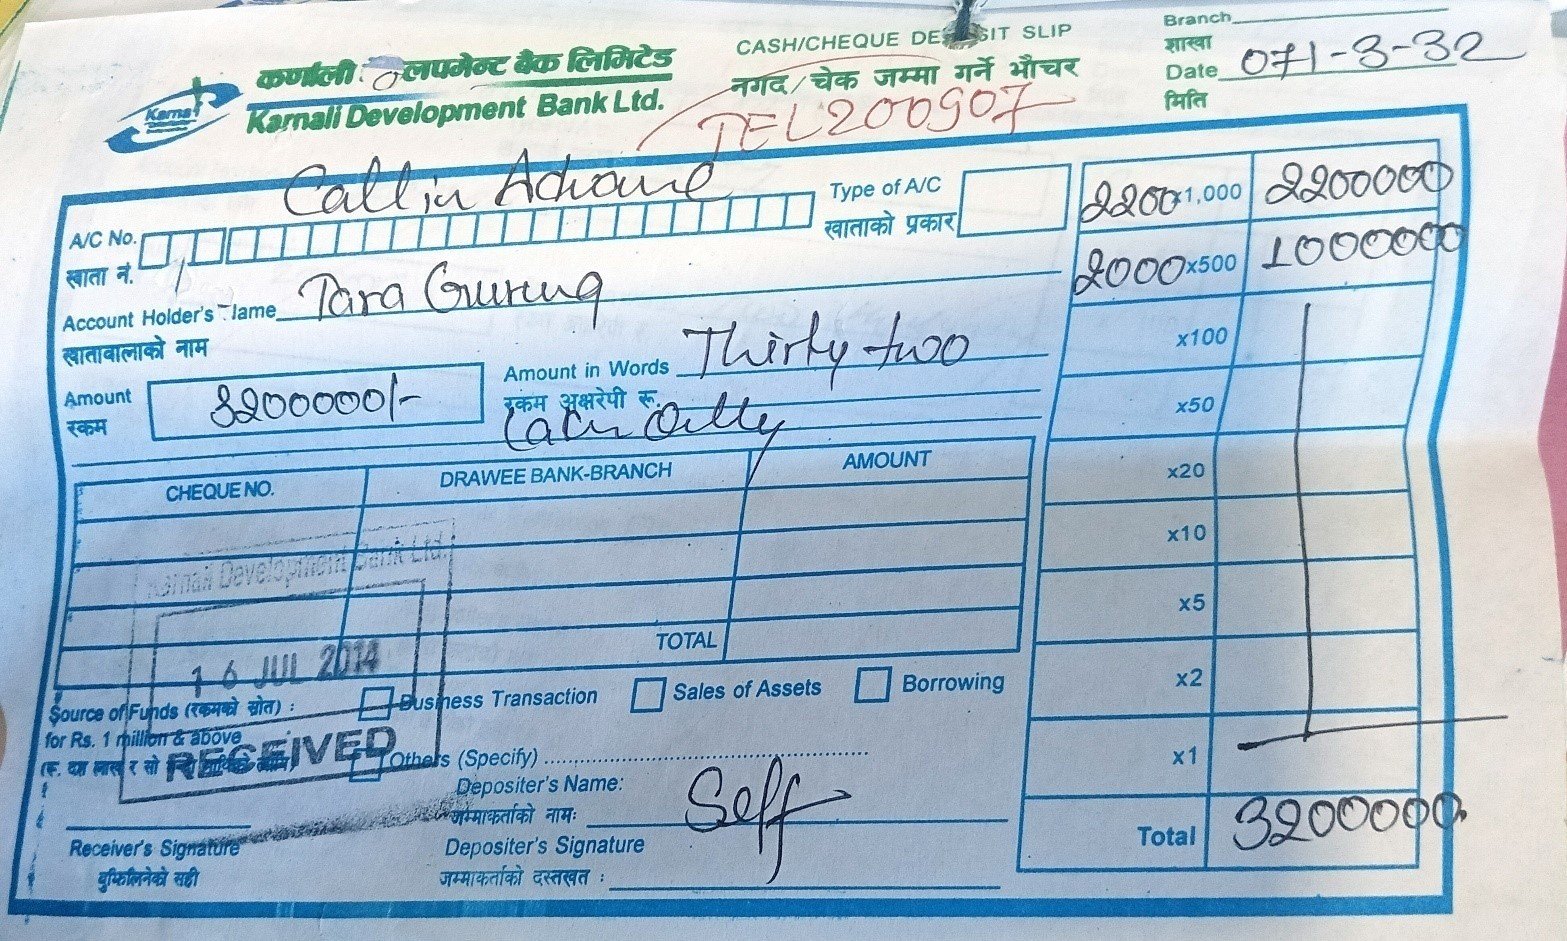 कर्णाली लपमेन्ट बैंक लिमिटेड
Karnali Development Bank Ltd.
Karna
CASH/CHEQUE DE SIT SLIP
नगद/चेक जम्मा गर्ने भौचर
TEL200907
Branch
शाखा
Date 071-3-32
मिति
Call in
A/C No.
खाता नं.
Type of A/C
खाताको प्रकार
Account Holder's ame Tara Gurung
खातावालाको नाम
Amount 3200000/-
रकम
Amount in Words Thirty two
रकम अक्षरेपी रू.
Lakh Only
CHEQUE NO. DRAWEE BANK-BRANCH AMOUNT
TOTAL
2200 x1,000 2200000
2000 x500 1000000
x100
x50
x20
x10
x5
x2
x1
Total 3200000
Karnali Development Bank Ltd.
16 JUL 2014
RECEIVED
Source of Funds (रकमको स्रोत) :
for Rs. 1 million & above
Business Transaction
Sales of Assets
Borrowing
Others (Specify)
Depositer's Name:
जम्माकर्ताको नामः
Self
Depositer's Signature
जम्माकर्ताको दस्तखत :
Receiver's Signature
बुझिलिनेको सही